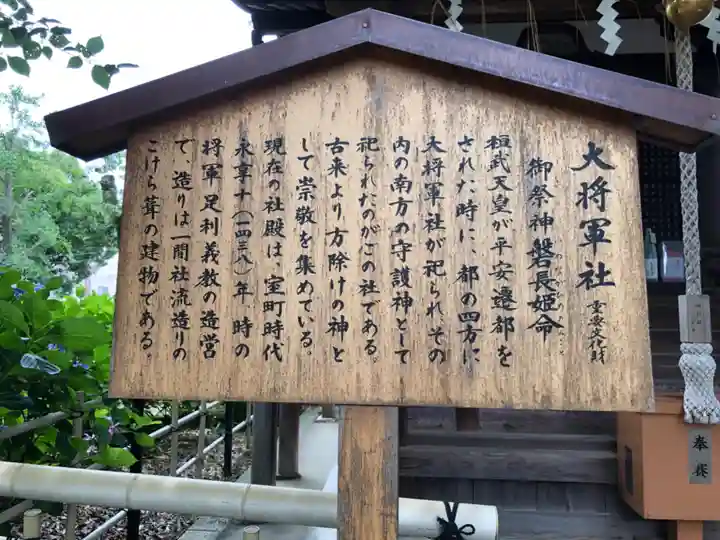 大将軍社 重要文化財
御祭神 磐長姫命
桓武天皇が平安遷都を
された時に、都の四方に
大将軍社が祀られその
内の南方の守護神として
祀られたのがこの社である。
古来より方除けの神と
して崇敬を集めている。
現在の社殿は、室町時代
永享十(一四三八)年、時の
将軍足利義教の造営
で、造りは一間社流造りの
こけら葺の建物である。
奉賽